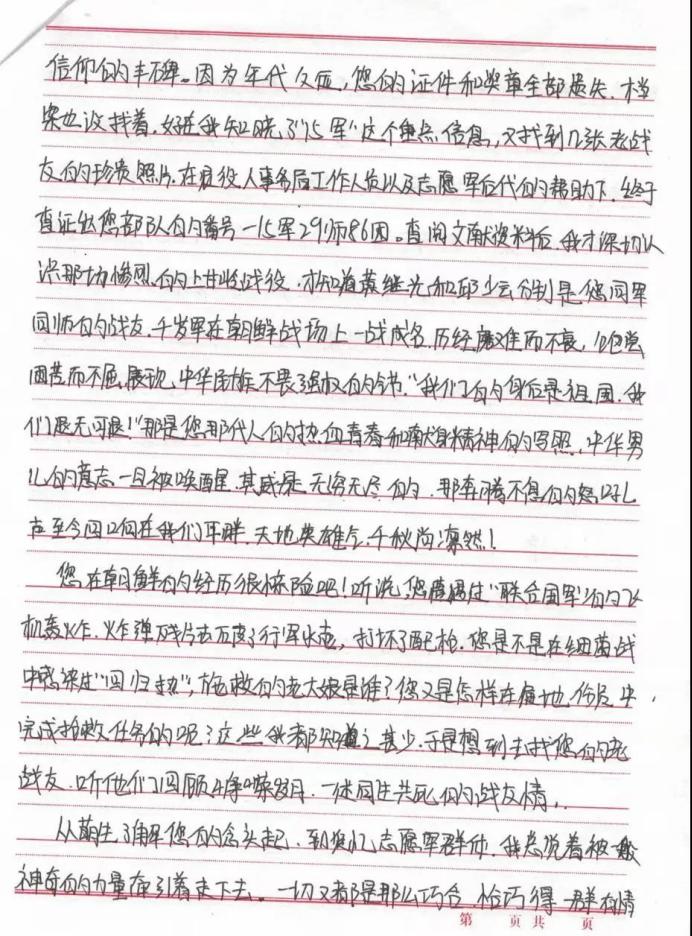 信仰的丰碑。因为年代久远,您的证件和奖章全部遗失,档
案也没找着。好在我知晓了"15军"这个重点信息,又找到几张老战
友的珍贵照片,在退役人事务局工作人员以及志愿军后代的帮助下,终于
查证出您部队的番号—15军29师86团。查阅文献资料后,我才深切认
识那场惨烈的上甘岭战役,才知道黄继光和邱少云分别是您同军
同师的战友,千岁军在朝鲜战场上一战成名,历经磨难而不衰,饱尝
困苦而不屈,展现中华民族不畏强权的气节。"我们的身后是祖国,我
们退无可退!"那是您那代人的热血青春和献身精神的写照,中华男
儿的意志一旦被唤醒,其威是无穷无尽的,那奔腾不息的怒吼
声至今回响在我们耳畔,天地英雄气,千秋尚凛然!
您在朝鲜的经历很惊险吧!听说,您遭遇过"联合国军"的飞
机轰炸,炸弹残片击穿了行军水壶,打坏了配枪。您是不是在细菌战
中感染过"回归热",施救的老大娘是谁?您又是怎样在腹地伤兵中
完成抢救任务的呢?这些我都知道甚少,于是想到去找您的老
战友,听他们回顾峥嵘岁月,一述同生共死的战友情。
从萌生了解您的念头起,到追忆志愿军群体,我总觉着被一股
神奇的力量牵引着走下去。一切又都是那么巧合,恰巧得一群有情
第 页 共 页